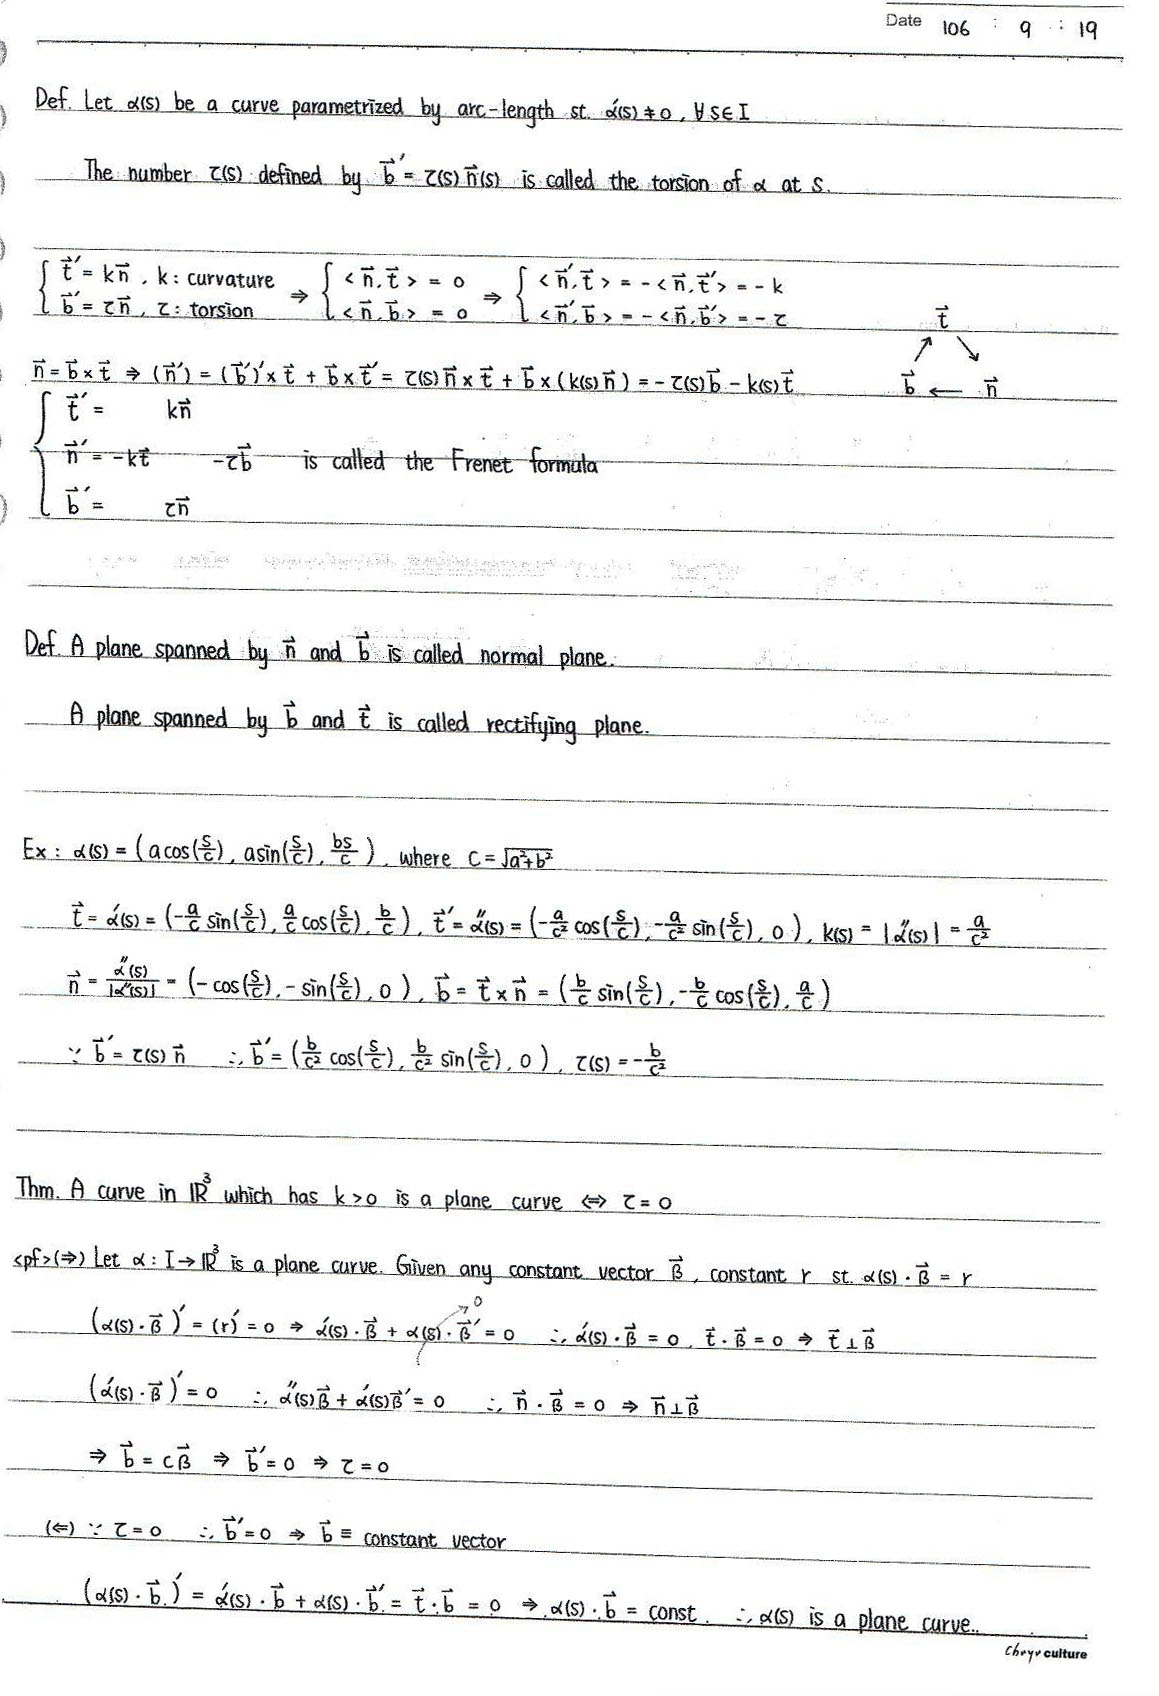 Date 106 : 9 : 19
Def. Let α(s) be a curve parametrized by arc-length st. ά(s) ≠ 0, ∀ s ∈ I
The number τ(s) defined by b⃗′ = τ(s) n⃗(s) is called the torsion of α at s.
{ t⃗′ = kn⃗, k : curvature ⇒ { <n⃗, t⃗> = 0 ⇒ { <n⃗′, t⃗> = -<n⃗, t⃗′> = -k
b⃗′ = τn⃗, τ : torsion <n⃗, b⃗> = 0 <n⃗′, b⃗> = -<n⃗, b⃗′> = -τ
t⃗
n⃗ = b⃗ × t⃗ ⇒ (n⃗′) = (b⃗′)′ × t⃗ + b⃗ × t⃗′ = τ(s) n⃗ × t⃗ + b⃗ × (k(s) n⃗) = -τ(s) b⃗ - k(s) t⃗
b⃗ ← n⃗
{ t⃗′ = kn⃗
n⃗′ = -kt⃗ -τb⃗ is called the Frenet formula
b⃗′ = τn⃗
Def. A plane spanned by n⃗ and b⃗ is called normal plane.
A plane spanned by b⃗ and t⃗ is called rectifying plane.
Ex : α(s) = (a cos(s/c), a sin(s/c), bs/c), where c = √(a²+b²)
t⃗ = α′(s) = (-a/c sin(s/c), a/c cos(s/c), b/c), t⃗′ = α″(s) = (-a/c² cos(s/c), -a/c² sin(s/c), 0), k(s) = |α″(s)| = a/c²
n⃗ = α″(s)/|α″(s)| = (-cos(s/c), -sin(s/c), 0), b⃗ = t⃗ × n⃗ = (b/c sin(s/c), -b/c cos(s/c), a/c)
∵ b⃗′ = τ(s) n⃗ ∴ b⃗′ = (b/c² cos(s/c), b/c² sin(s/c), 0), τ(s) = -b/c²
Thm. A curve in ℝ³ which has k > 0 is a plane curve ⇔ τ = 0
<pf> (⇒) Let α : I → ℝ³ is a plane curve. Given any constant vector β⃗, constant r st. α(s) · β⃗ = r
(α(s) · β⃗)′ = (r)′ = 0 ⇒ α′(s) · β⃗ + α(s) · β⃗′ = 0 ∴ α′(s) · β⃗ = 0, t⃗ · β⃗ = 0 ⇒ t⃗ ⊥ β⃗
0
(α′(s) · β⃗)′ = 0 ∴ α″(s) β⃗ + α′(s) β⃗′ = 0 ∴ n⃗ · β⃗ = 0 ⇒ n⃗ ⊥ β⃗
⇒ b⃗ = cβ⃗ ⇒ b⃗′ = 0 ⇒ τ = 0
(⇐) ∵ τ = 0 ∴ b⃗′ = 0 ⇒ b⃗ ≡ constant vector
(α(s) · b⃗)′ = α′(s) · b⃗ + α(s) · b⃗′ = t⃗ · b⃗ = 0 ⇒ α(s) · b⃗ = const. ∴ α(s) is a plane curve.
culture